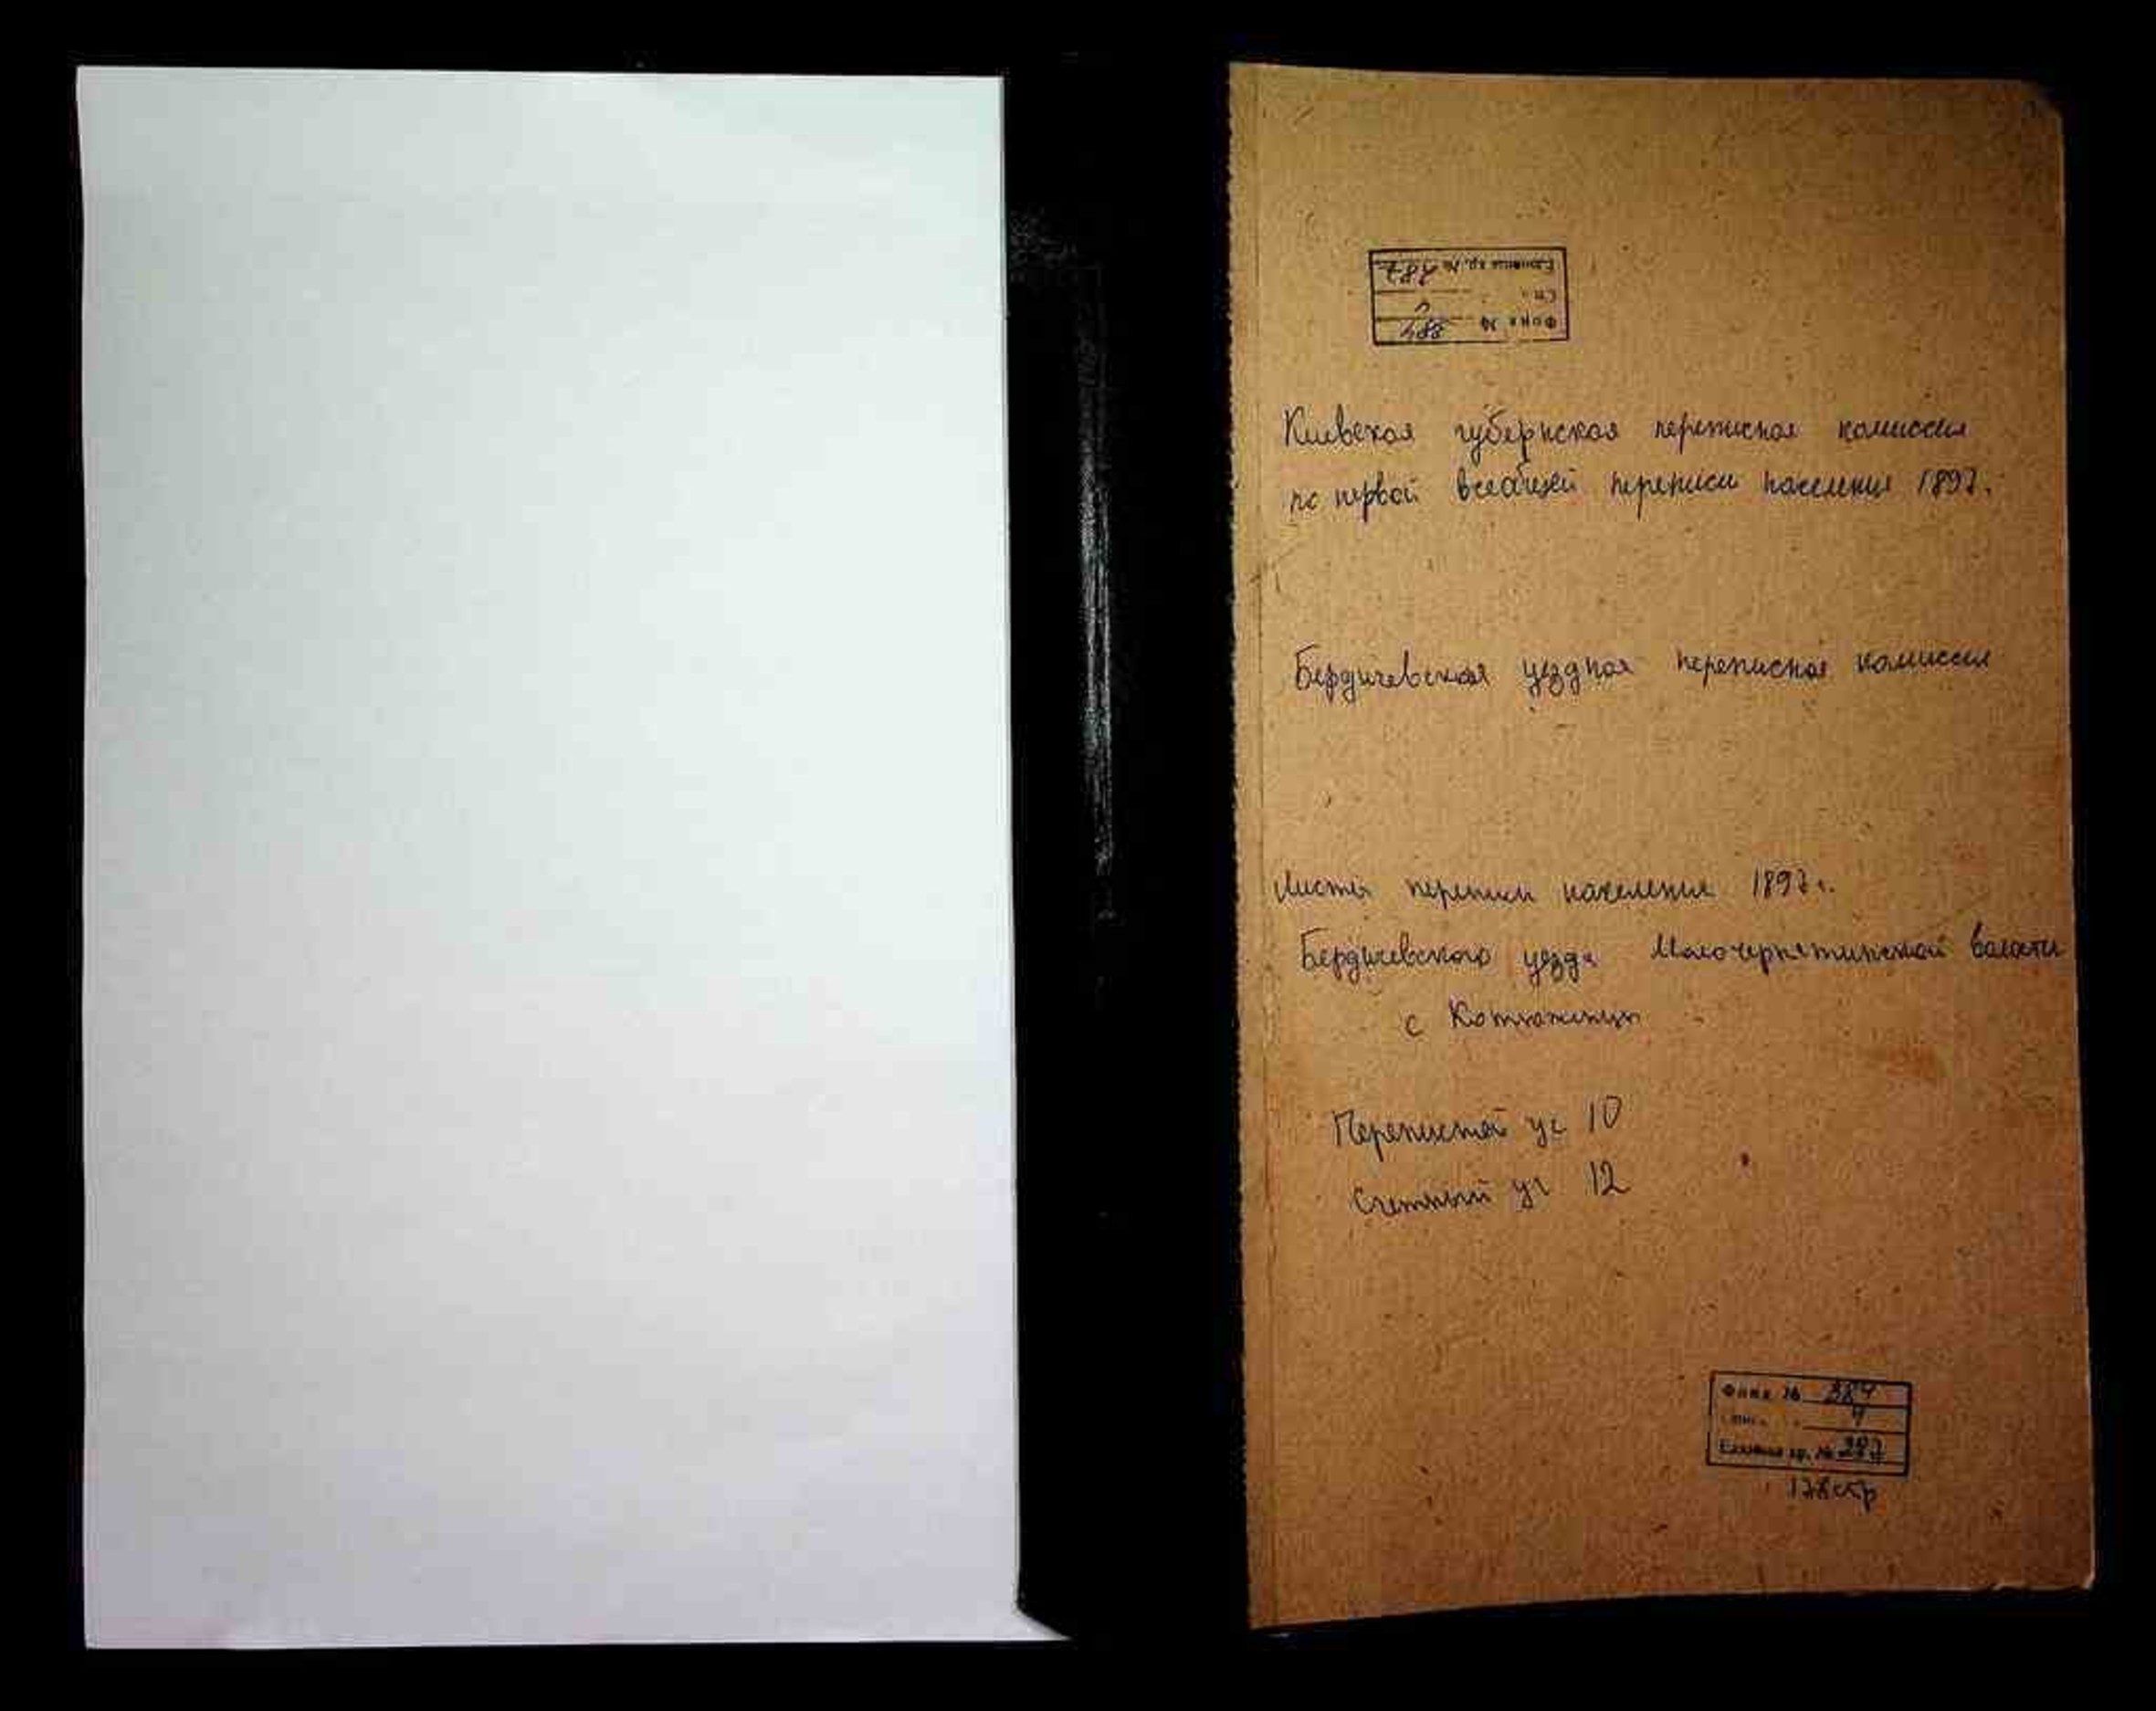 Фонд № 884
Оп. 4
Единица хр. № 287
Киевская губернская переписная комиссия
по первой всеобщей переписи населения 1897.
Бердичевская уездная переписная комиссия
Листы переписи населения 1897 г.
Бердичевского уезда Малочернятинской волости
с Котюжинцы
Переписной уч 10
Счетный уч 12
Фонд № 384
Опись 4
Единица хр. № 287
178 стр